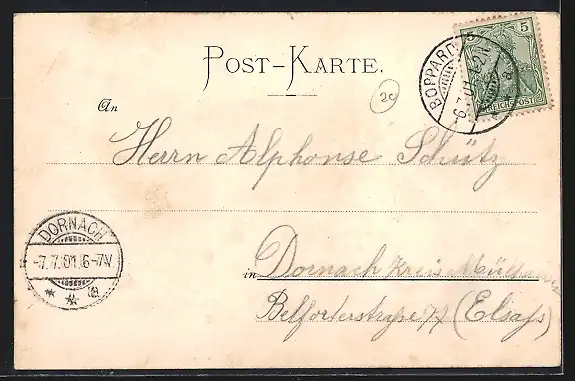 POST-KARTE.
5
REICHSPOST
BOPPARD
6.7.01
2c
An
Herrn Alphonse Schütz
DORNACH
-7.7.01.6-7V
* * a
in Dornach Kreis
Belforterstraße (Elsaſs)